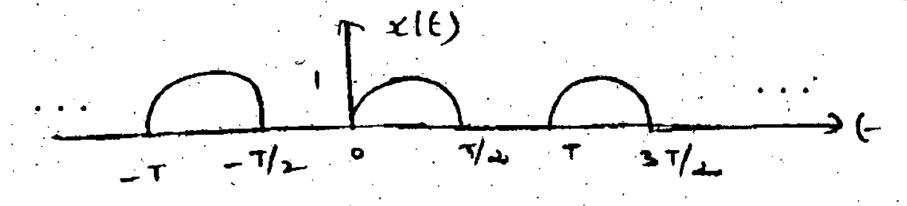 x(t)
1
... ...
-T -T/2 0 T/2 T 3T/2 t